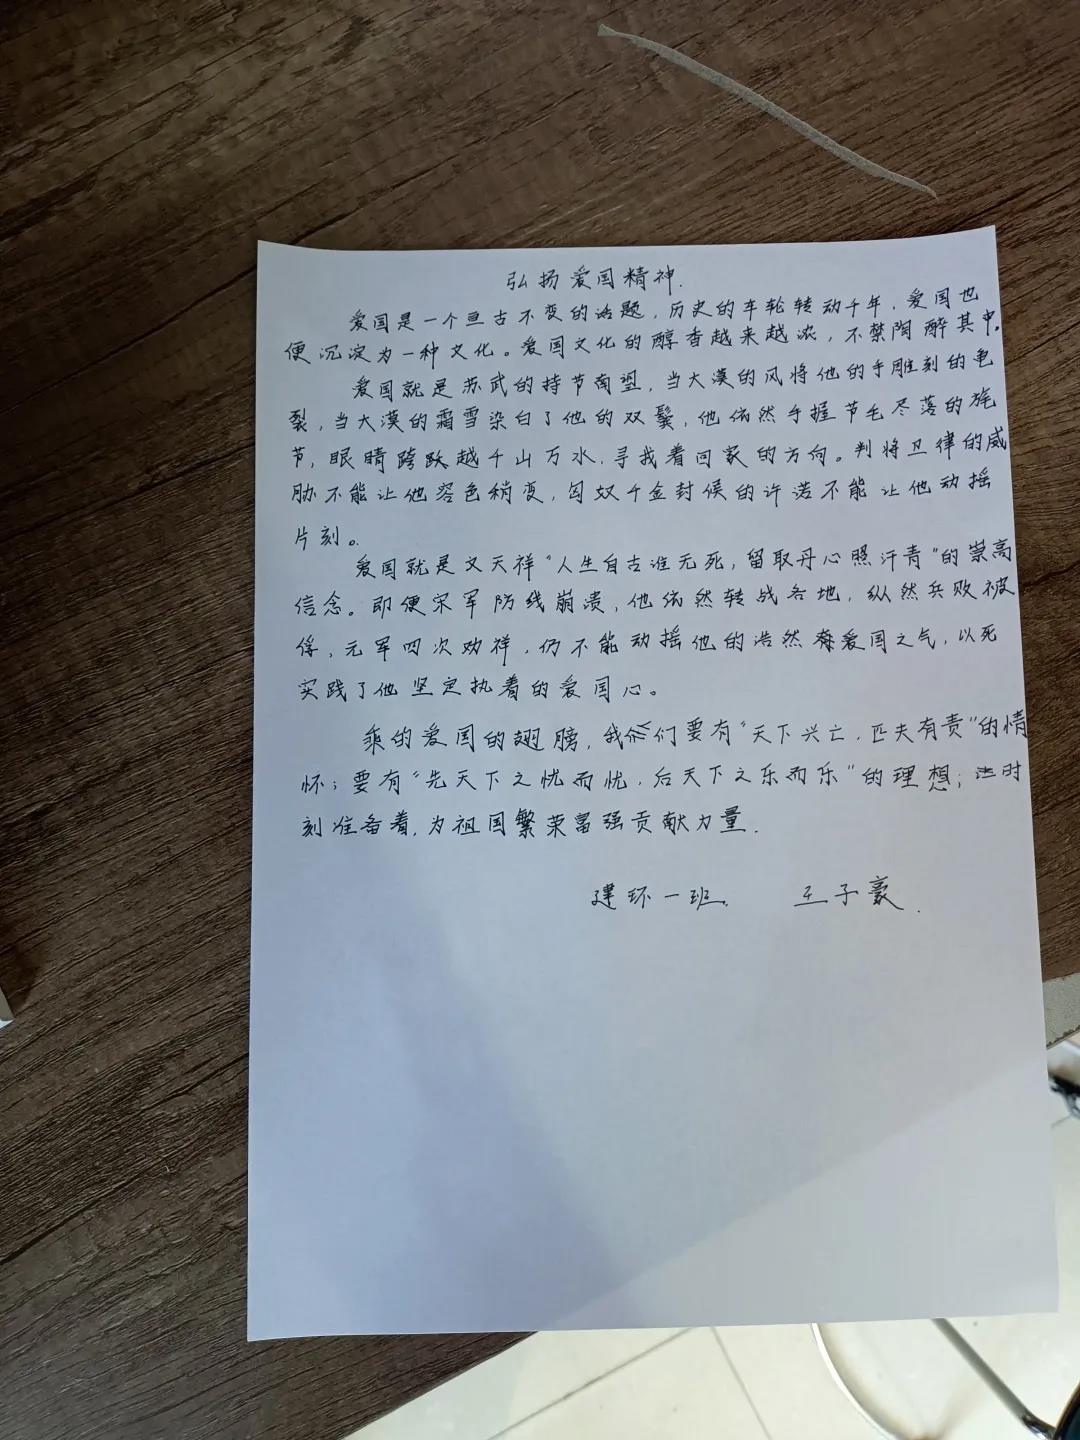 弘扬爱国精神.
爱国是一个亘古不变的话题，历史的车轮转动千年，爱国也
便沉淀为一种文化。爱国文化的醇香越来越浓，不禁陶醉其中。
爱国就是苏武的持节南望，当大漠的风将他的手雕刻的龟
裂，当大漠的霜雪染白了他的双鬓，他依然手握节毛尽落的旄
节，眼睛跨跃越千山万水，寻找着回家的方向。判将卫律的威
胁不能让他容色稍变，匈奴千金封候的许诺不能让他动摇
片刻。
爱国就是文天祥“人生自古谁无死，留取丹心照汗青”的崇高
信念。即便宋军防线崩溃，他依然转战各地，纵然兵败被
俘，元军四次劝祥，仍不能动摇他的浩然爱国之气，以死
实践了他坚定执着的爱国心。
乘的爱国的翅膀，我们要有“天下兴亡，匹夫有责”的情
怀；要有“先天下之忧而忧，后天下之乐而乐”的理想；时
刻准备着，为祖国繁荣富强贡献力量.
建环一班. 王子豪.